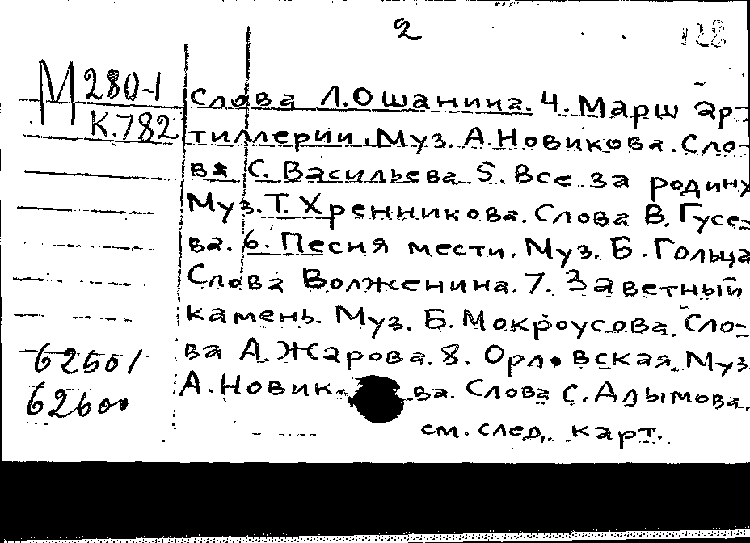 2
128
М 280-1
К.782
Слова Л.Ошанина. 4. Марш ар-
тиллерии. Муз. А.Новикова. Сло-
ва С. Васильева 5. Все за родину
Муз. Т. Хренникова. Слова В. Гусе-
ва. 6. Песня мести. Муз. Б. Гольца
Слова Волженина. 7. Заветный
камень. Муз. Б. Мокроусова. Сло-
ва А. Жарова. 8. Орловская. Муз
А. Новик ва. Слова С. Алымова.
см. след. карт.
62601
62600